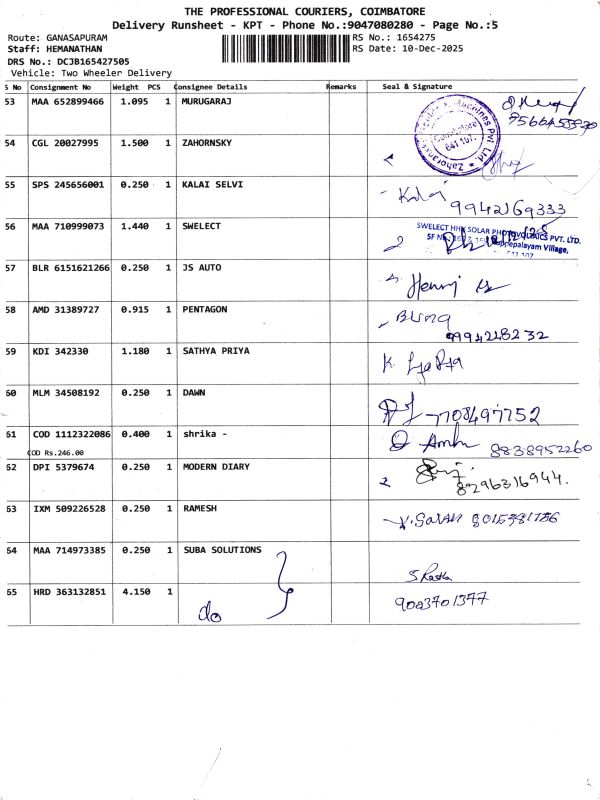 THE PROFESSIONAL COURIERS, COIMBATORE
Delivery Runsheet - KPT - Phone No.:9047080280 - Page No.:5
Route: GANASAPURAM RS No.: 1654275
Staff: HEMANATHAN RS Date: 10-Dec-2025
DRS No.: DCJB165427505
Vehicle: Two Wheeler Delivery
S No Consignment No Weight PCS Consignee Details Remarks Seal & Signature
53 MAA 652899466 1.095 1 MURUGARAJ
54 CGL 20027995 1.500 1 ZAHORNSKY
Coimbatore
641 107.
55 SPS 245656001 0.250 1 KALAI SELVI Kalai
9942169333
56 MAA 710999073 1.440 1 SWELECT
SWELECT HHV SOLAR PHOTOVOLTAICS PVT. LTD.
Village,
641 107
57 BLR 6151621266 0.250 1 JS AUTO Henry
58 AMD 31389727 0.915 1 PENTAGON
9994218232
59 KDI 342330 1.180 1 SATHYA PRIYA K.
60 MLM 34508192 0.250 1 DAWN 7708497752
61 COD 1112322086 0.400 1 shrika - 8838952260
COD Rs.246.00
62 DPI 5379674 0.250 1 MODERN DIARY
8296316944.
63 IXM 509226528 0.250 1 RAMESH
64 MAA 714973385 0.250 1 SUBA SOLUTIONS
65 HRD 363132851 4.150 1 do 9003701377